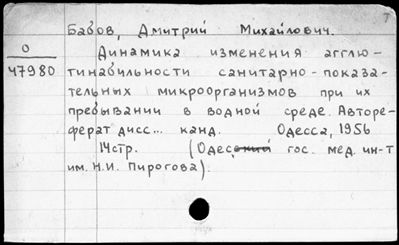 Бабов, Дмитрий Михайлович.
О
47980
Динамика изменения агглю-
тинабильности санитарно-показа-
тельных микроорганизмов при их
пребывании в водной среде. Авторе-
ферат дисс... канд. Одесса, 1956
14стр. (Одесский гос. мед. ин-т
им. Н.И. Пирогова).